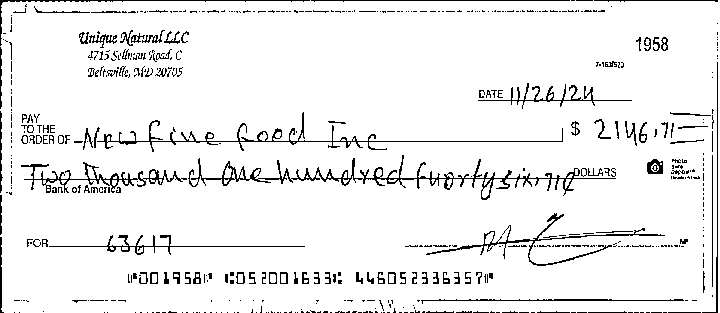 Unique Natural LLC
1958
4715 Sellman Road, C
Beltsville, MD 20705
DATE 11/26/24
PAY
TO THE
ORDER OF New fine food Inc $ 2146.71
Two Thousand one hundred fuorty six, 71¢ DOLLARS
Bank of America
Photo
Safe
Deposit
FOR 63617
MP
⑈001958⑈ ⑆052001633⑆ 446052336357⑈